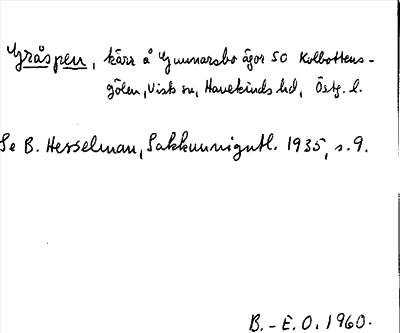 Gråspen, kärr å Gunnarsbo ägor SO Kolbottens-
gölen, Visk sn, Hanekinds hd, Östg. l.
Se B. Hesselman, Sakkunnigutl. 1935, s. 9.
B.-E.O. 1960.